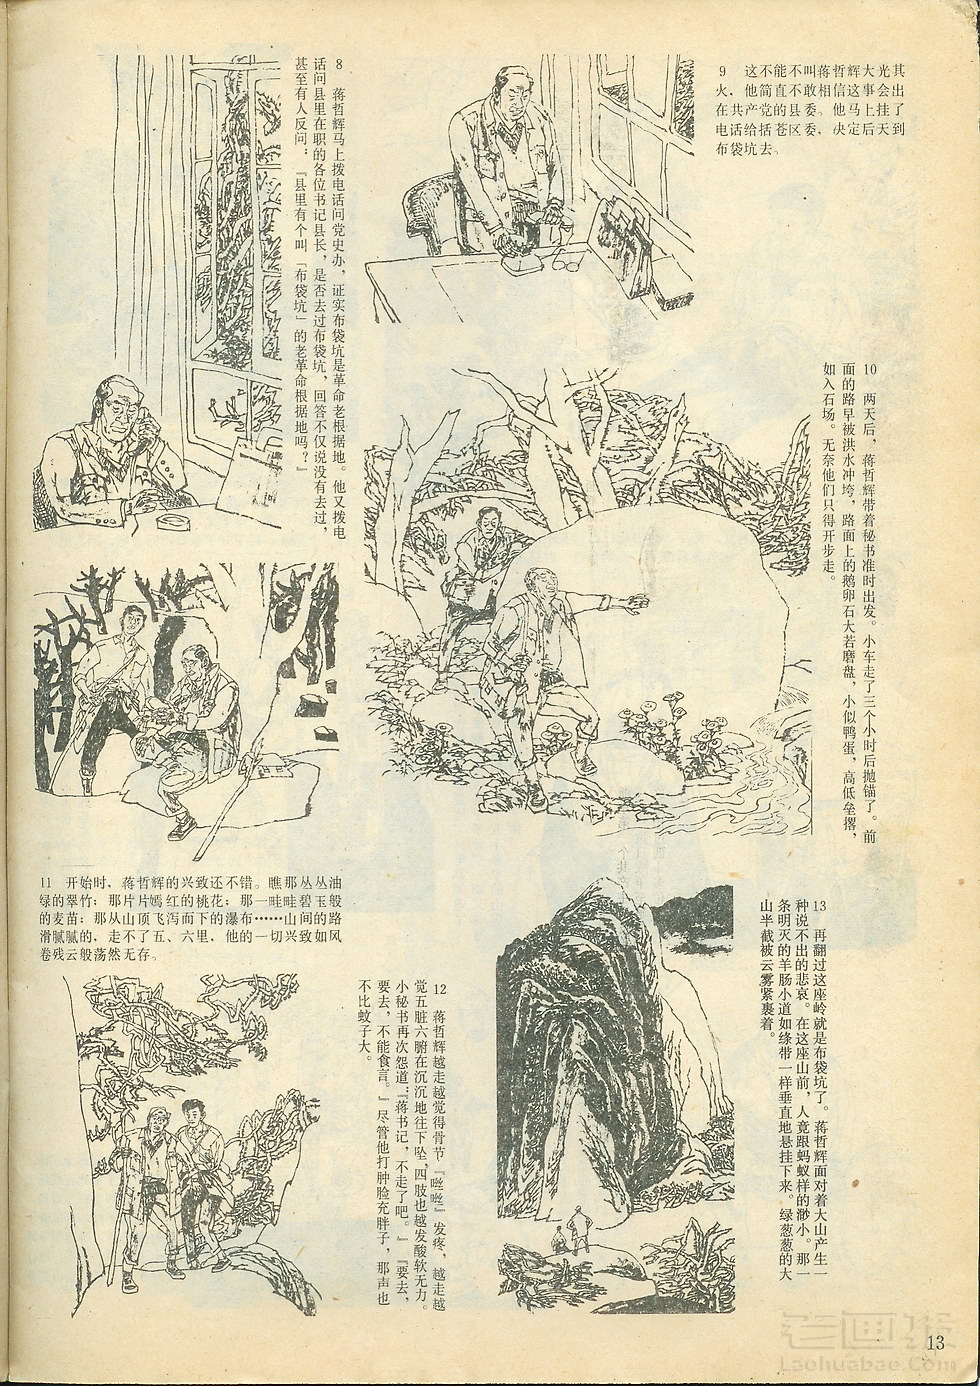 8　蒋哲辉马上拨电话问党史办，证实布袋坑是革命老根据地。他又拨电
话问县里在职的各位书记县长，是否去过布袋坑，回答不仅说没有去过，
甚至有人反问：『县里有个叫「布袋坑」的老革命根据地吗？』
9　这不能不叫蒋哲辉大光其
火，他简直不敢相信这事会出
在共产党的县委。他马上挂了
电话给括苍区委，决定后天到
布袋坑去。
10　两天后，蒋哲辉带着秘书准时出发。小车走了三个小时后抛锚了。前
面的路早被洪水冲垮，路面上的鹅卵石大若磨盘，小似鸭蛋，高低垒撂，
如入石场。无奈他们只得开步走。
11　开始时，蒋哲辉的兴致还不错。瞧那丛丛油
绿的翠竹；那片片嫣红的桃花；那一畦畦碧玉般
的麦苗；那从山顶飞泻而下的瀑布……山间的路
滑腻腻的，走不了五、六里，他的一切兴致如风
卷残云般荡然无存。
12　蒋哲辉越走越觉得骨节『咝咝』发疼，越走越
觉五脏六腑在沉沉地往下坠，四肢也越发酸软无力。
小秘书再次怨道：『蒋书记，不走了吧。』『要去，
要去，不能食言。』尽管他打肿脸充胖子，那声也
不比蚊子大。
13　再翻过这座岭就是布袋坑了。蒋哲辉面对着大山产生一
种说不出的悲哀。在这座山前，人竟跟蚂蚁样的渺小。那一
条明灭的羊肠小道如绦带一样垂直地悬挂下来。绿葱葱的大
山半截被云雾紧裹着。
老画报
Laohuabao.Com
13